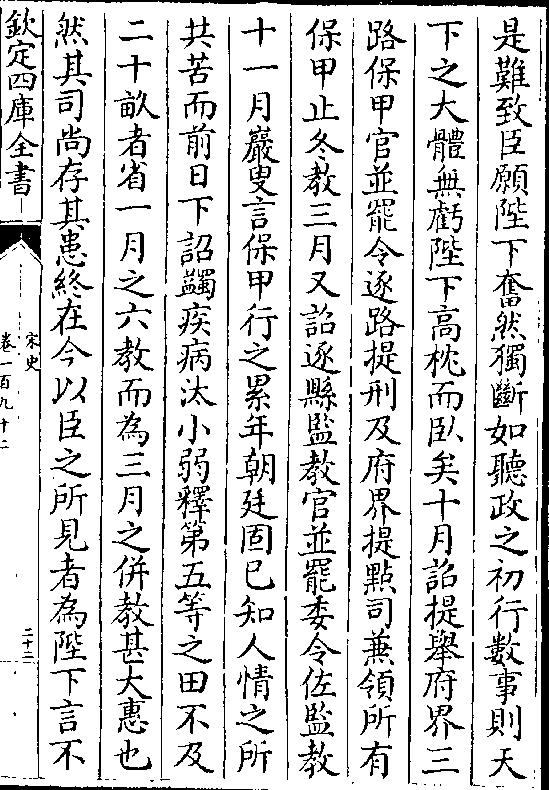 是難致臣願陛下奮然獨斷如聽政之初行數事則天
下之大體無虧陛下高枕而臥矣十月詔提舉府界三
路保甲官並罷令逐路提刑及府界提點司兼領所有
保甲止冬教三月又詔逐縣監教官並罷委令佐監教
十一月巖叟言保甲行之累年朝廷固已知人情之所
共苦而前日下詔蠲疾病汰小弱釋第五等之田不及
二十畝者省一月之六教而為三月之併教甚大惠也
然其司尚存其患終在今以臣之所見者為陛下言不
欽定四庫全書
宋史
卷一百九十二
二十二